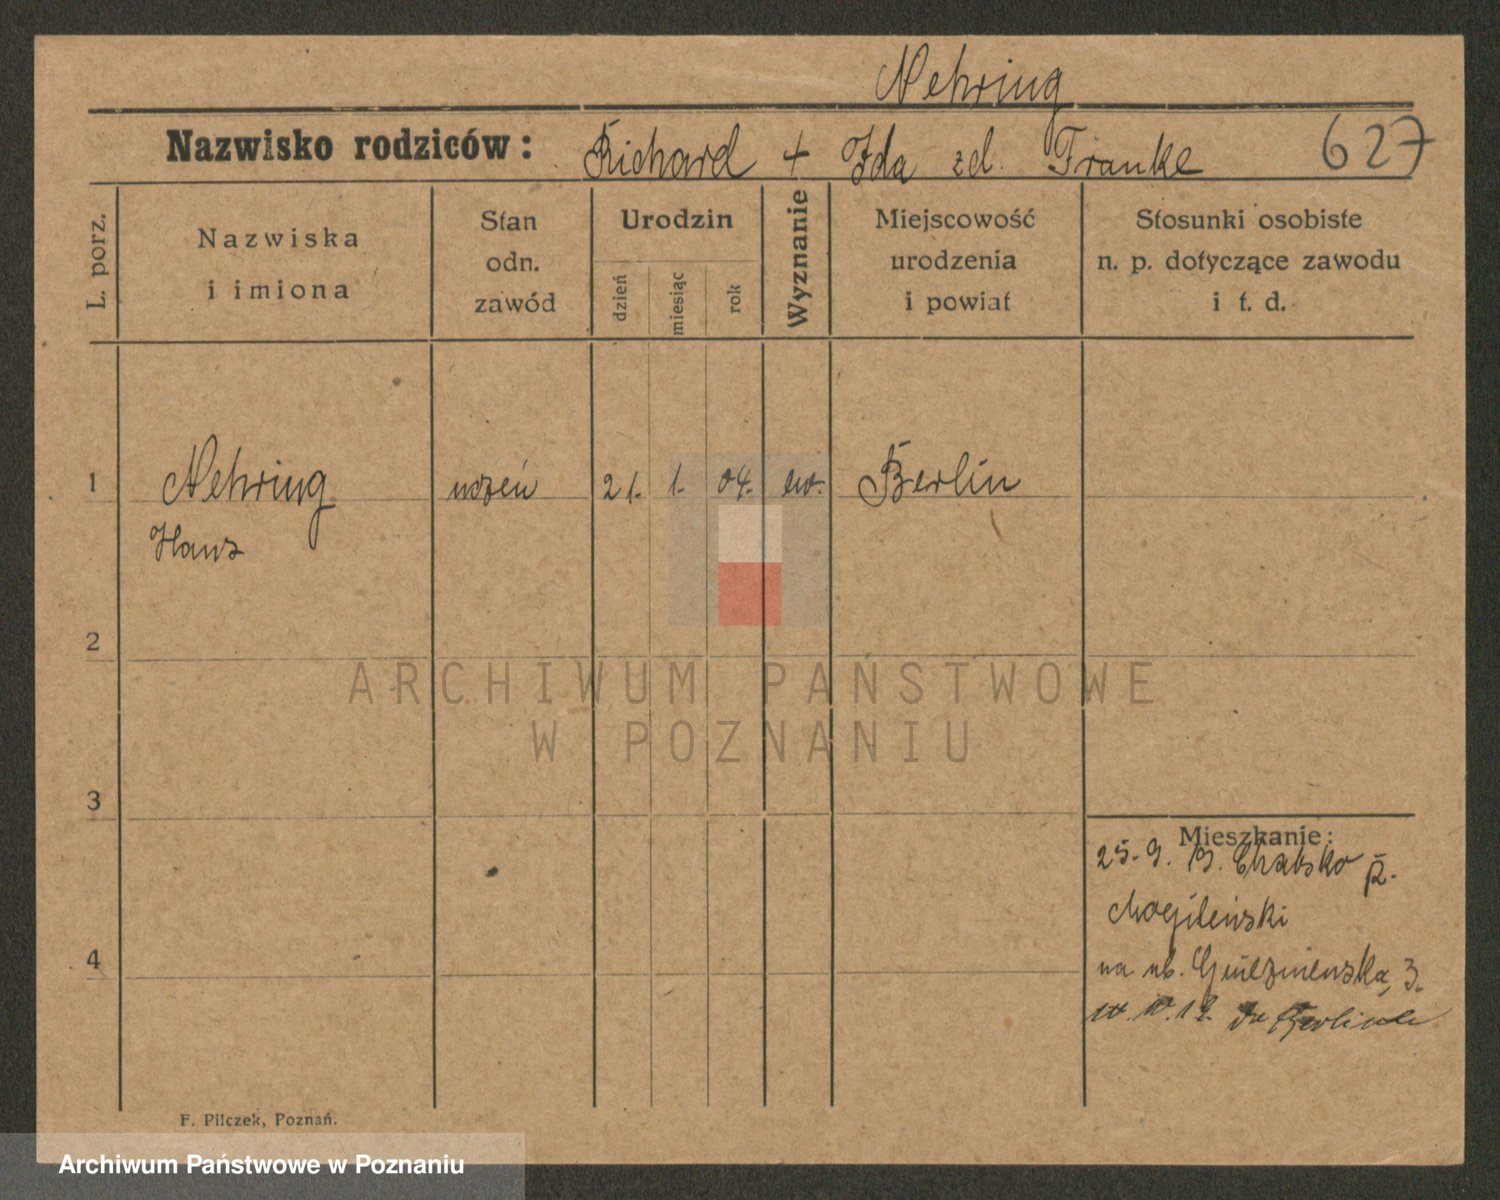 Nehring
Nazwisko rodziców: Richard + Ida zd. Franke 627
L. porz.
Nazwiska i imiona
Stan odn. zawód
Urodzin
dzień
miesiąc
rok
Wyznanie
Miejscowość urodzenia i powiat
Stosunki osobiste n. p. dotyczące zawodu i t. d.
1 Nehring uczeń 21. 1. 04. ew. Berlin
Hans
2
3
4
Mieszkanie:
25-9. 19. Chabsko p.
Mogileński
na ul. Gnieznienska, 3.
Berlina
F. Pilczek, Poznań.
ARCHIWUM PAŃSTWOWE
W POZNANIU
Archiwum Państwowe w Poznaniu